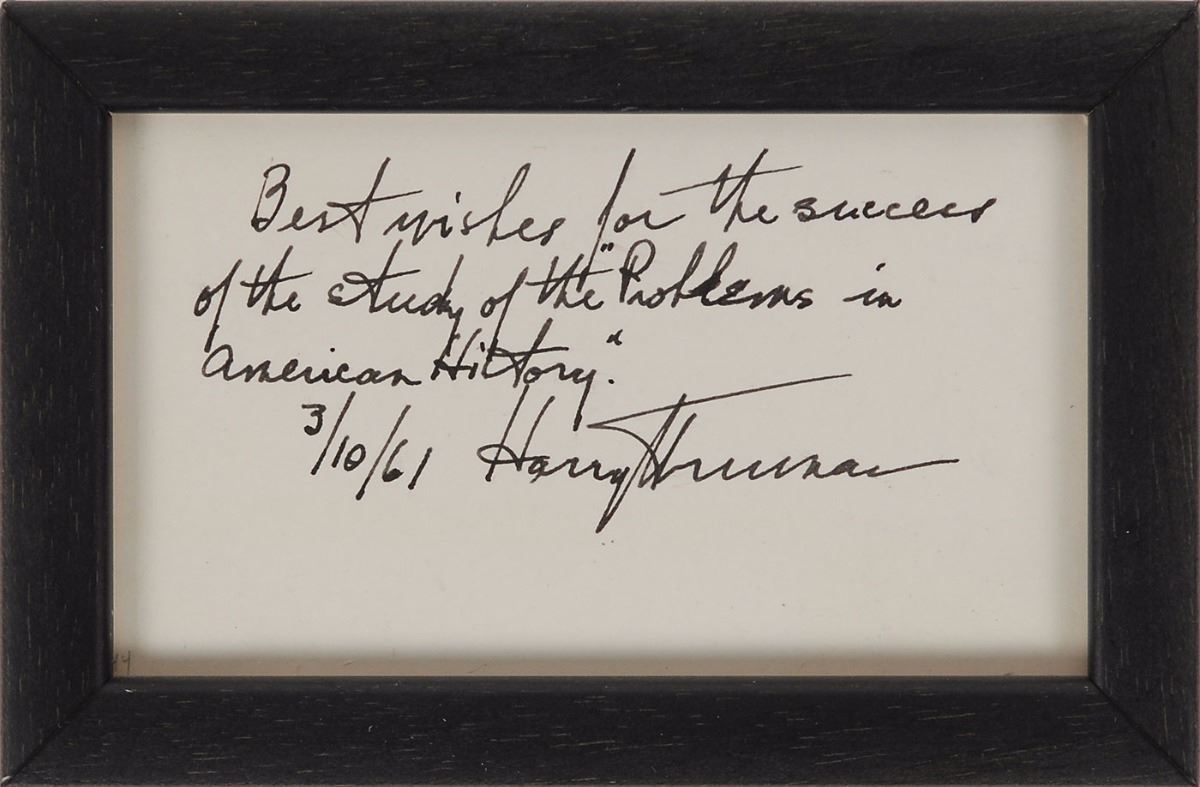 Best wishes for the success
of the study of the "Problems in
American History."
3/10/61 Harry Truman